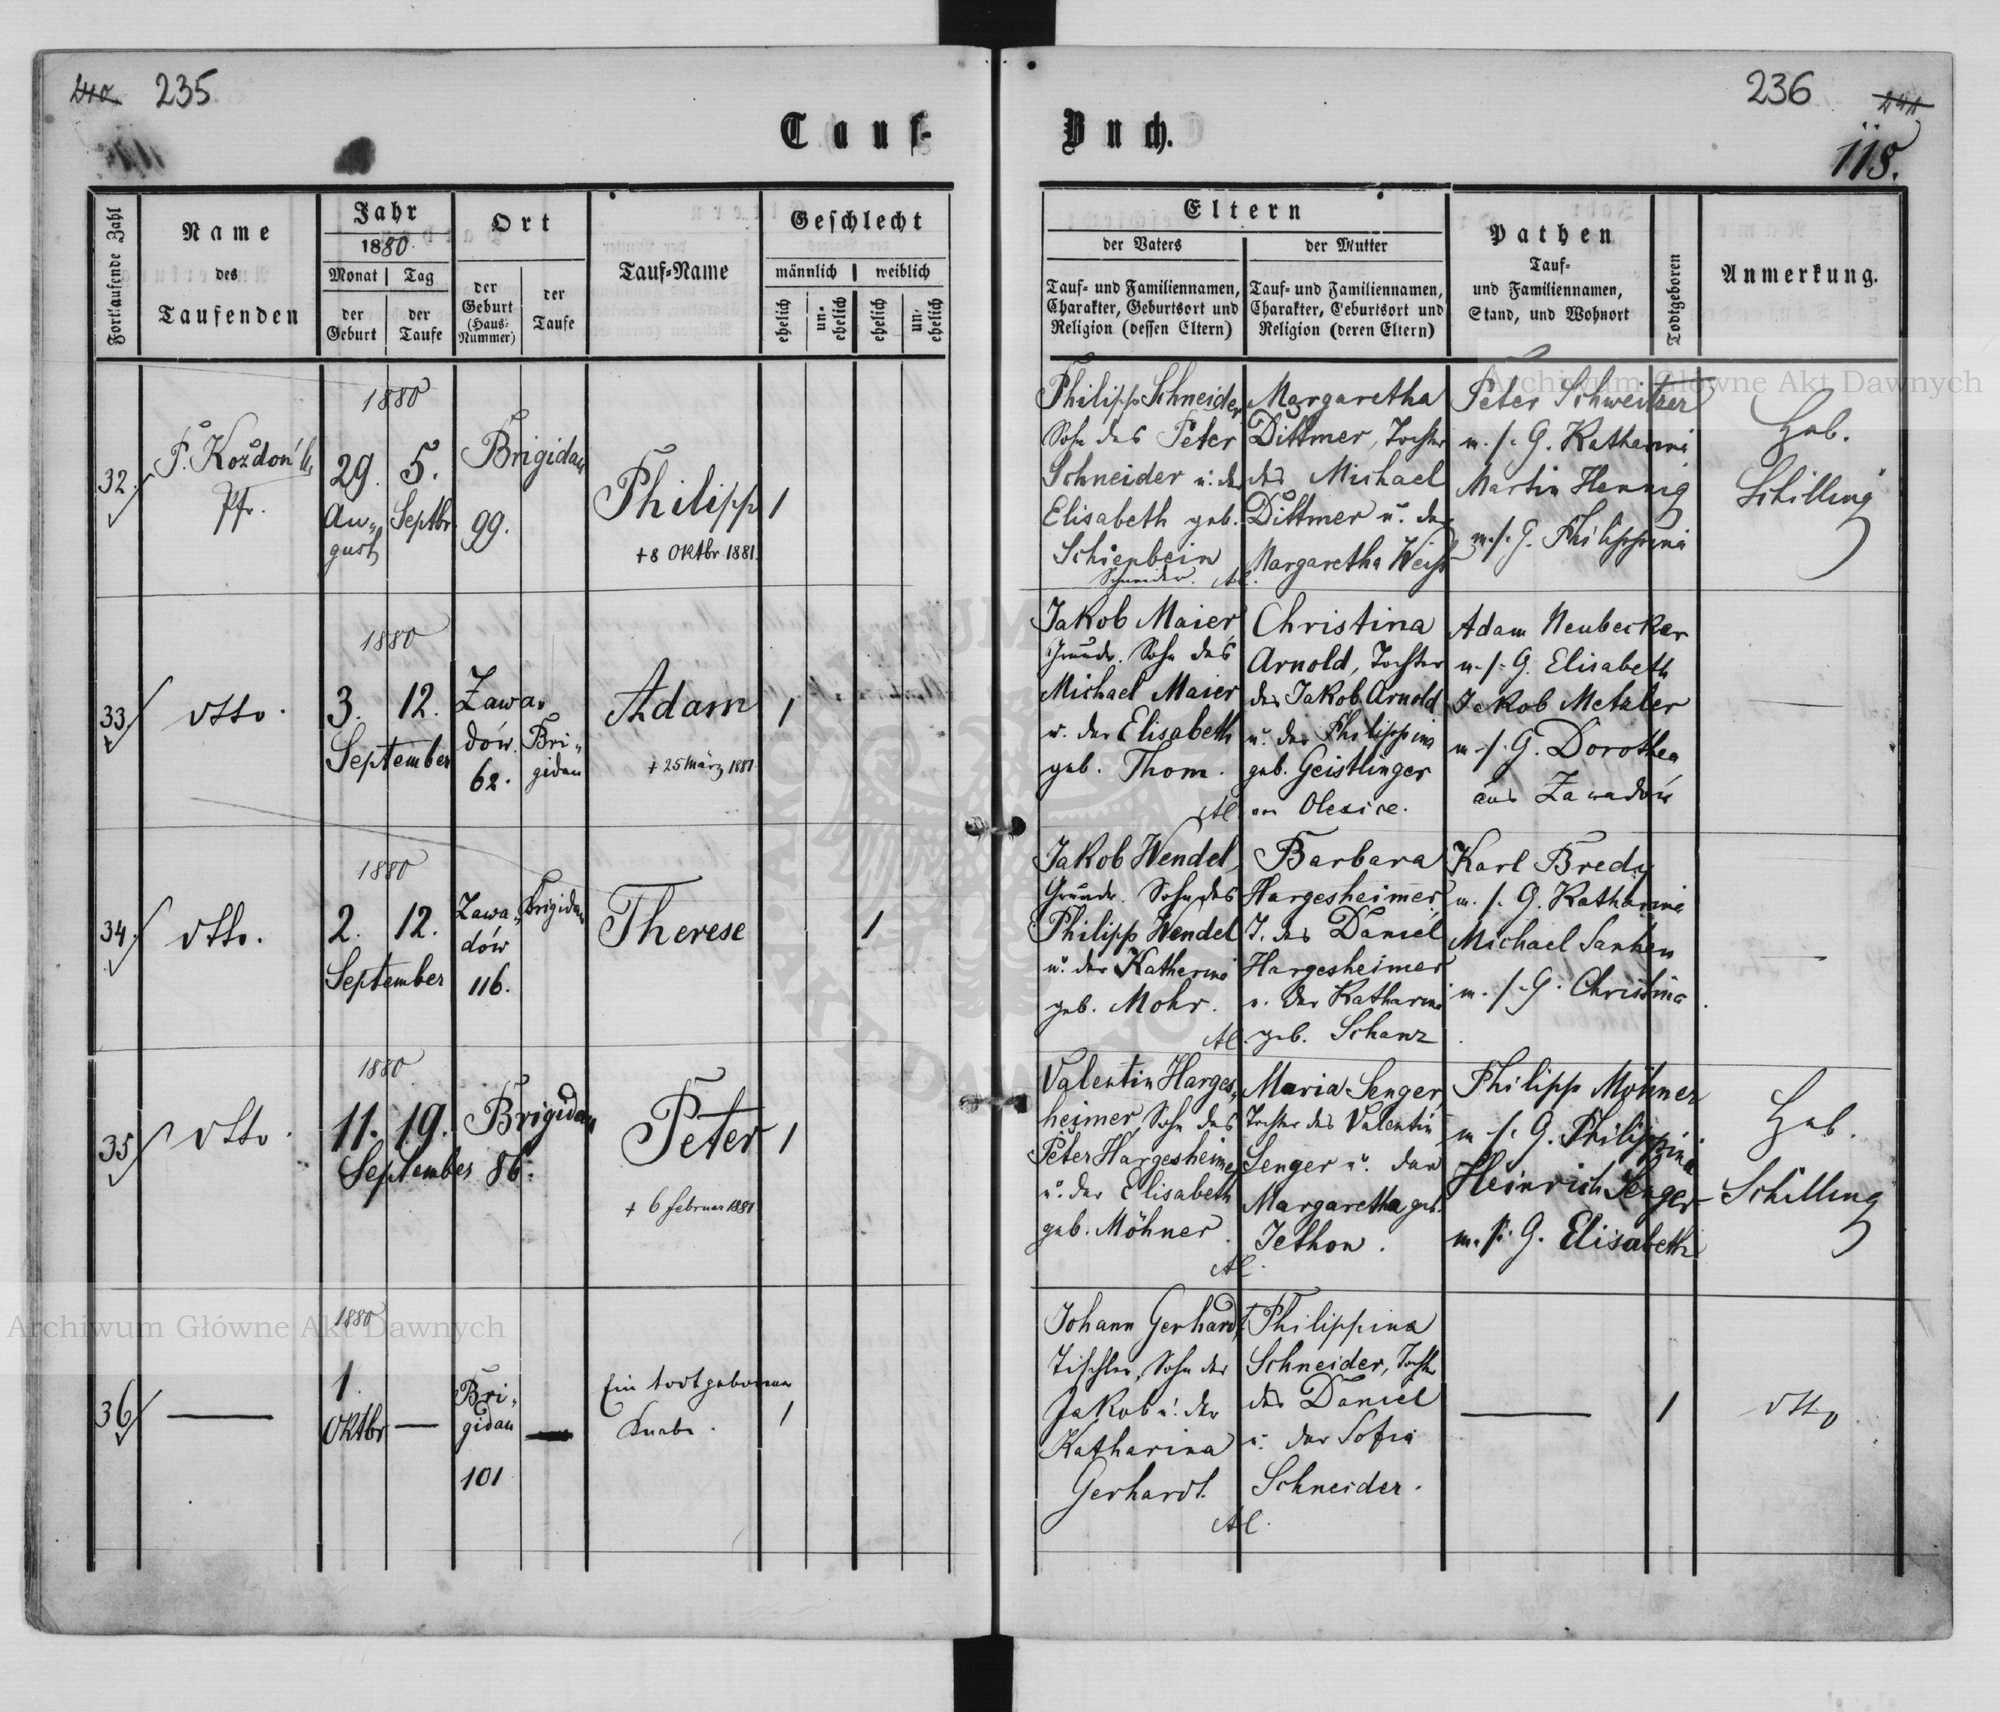 235
236
118.
Tauf-
Buch.
Fortlaufende Zahl
Name
des
Taufenden
Jahr
1880.
Monat
Tag
der
Geburt
der
Taufe
Ort
der
Geburt
(Haus-
Nummer)
der
Taufe
Tauf-Name
Geschlecht
männlich
weiblich
ehelich
un-
ehelich
ehelich
un-
ehelich
Eltern
der Vaters
der Mutter
Tauf- und Familiennamen,
Charakter, Geburtsort und
Religion (dessen Eltern)
Tauf- und Familiennamen,
Charakter, Geburtsort und
Religion (deren Eltern)
Pathen
Tauf-
und Familiennamen,
Stand, und Wohnort
Todtgeboren
Anmerkung.
32.
Pfr.
1880
29.
Au-
gust
5.
Septbr.
Brigidau
99.
Philipp
+ 8 Oktbr. 1881.
1
Philipp Schneider,
Sohn des Peter
Schneider u. der
Elisabeth geb.
Schienbein
Margaretha
Dittmer, Tochter
des Michael
Dittmer u. der
Margaretha Weiss
Peter Schweitzer
m. s. G. Katharina
Martin Hennig
m. s. G. Philippina
Heb.
Schilling
33
dtto.
1880
3.
12.
September
Zawa-
dów.
62.
Bri-
gidau
Adam
+ 25 März 1881
1
Jakob Maier
Grundr. Sohn des
Michael Maier
u. der Elisabeth
geb. Thom.
Christina
Arnold, Tochter
des Jakob Arnold
u. der Philippina
geb. Geistlinger
Olesice.
Adam Neubecker
m. s. G. Elisabeth
Jakob Metzler
m. s. G. Dorothea
aus Zawadów
34.
dtto.
1880
2.
12.
September
Zawa-
dów
116.
Brigidau
Therese
1
Jakob Wendel,
Grundr. Sohn des
Philipp Wendel
u. der Katharina
geb. Mohr.
Barbara
Hargesheimer,
T. des Daniel
Hargesheimer
u. der Katharina
geb. Schanz
Karl Bredy
m. s. G. Katharina
Michael Sanken
m. s. G. Christina
35
dtto.
1880
11.
19.
September
Brigidau
86.
Peter
+ 6 Februar 1881
1
Valentin Harges-
heimer, Sohn des
Peter Hargesheimer
u. der Elisabeth
geb. Möhner.
Maria Senger,
Tochter des Valentin
Senger u. der
Margaretha geb.
Jethon.
Philipp Möhner
m. s. G. Philippina
Heinrich Senger
m. s. G. Elisabeth
Heb.
Schilling
36
1880
1.
Oktbr.
Bri-
gidau
101
Ein todtgeborner
Knabe.
1
Johann Gerhardt,
Tischler, Sohn des
Jakob u. der
Katharina
Gerhardt.
Philippina
Schneider, Tochter
des Daniel
u. der Sofia
Schneider.
1
dtto
Archiwum Główne Akt Dawnych
Archiwum Główne Akt Dawnych